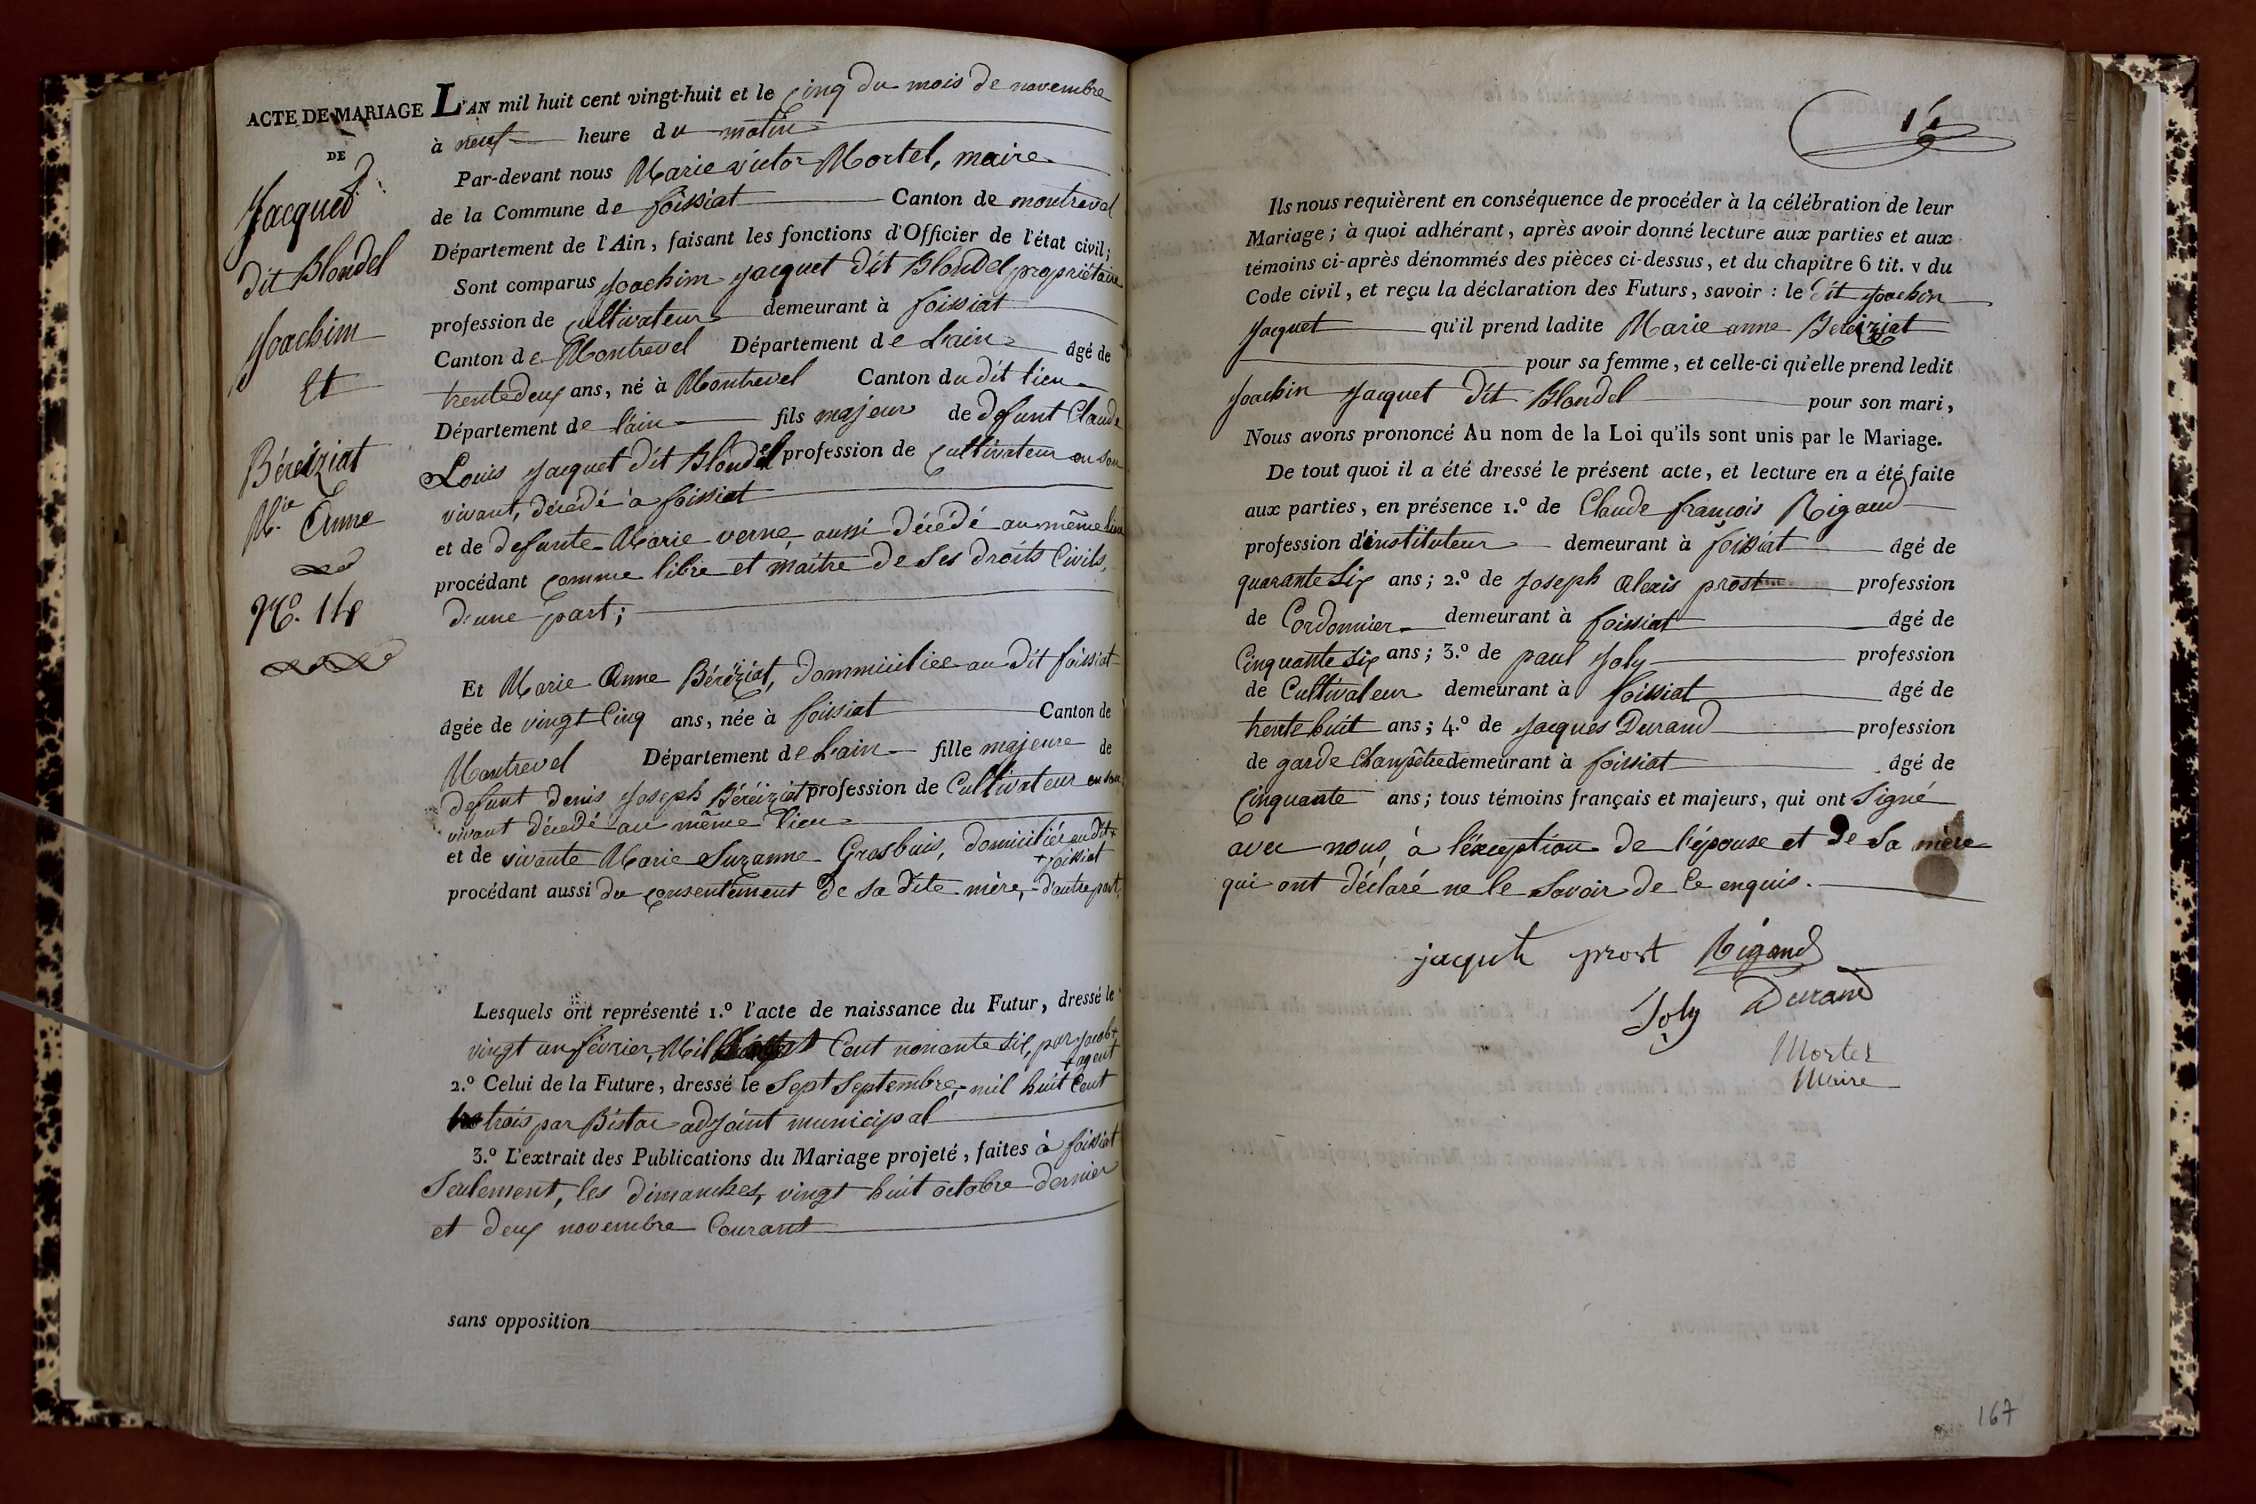 ACTE DE MARIAGE
DE
Jacquet
dit Blondel
Joachim
Et
Béréiziat
M.ie Anne
N.o 14
L'AN mil huit cent vingt-huit et le cinq du mois de novembre
à neuf heure du matin
Par-devant nous Marie victor Mortel, maire
de la Commune de foissiat Canton de montrevel
Département de l'Ain, faisant les fonctions d'Officier de l'état civil;
Sont comparus Joachim Jacquet dit Blondel propriétaire
profession de cultivateur demeurant à foissiat
Canton de Montrevel Département de L'ain âgé de
trente deux ans, né à Montrevel Canton du dit lieu
Département de l'ain fils majeur de defunt Claude
Louis Jacquet dit Blondel profession de cultivateur en son
vivant, décédé à foissiat
et de defunte Marie verne, aussi décédé au même lieu
procédant comme libre et maitre de ses droits Civils,
d'une part;
Et Marie Anne Béréiziat, dommiciliée au dit foissiat
âgée de vingt Cinq ans, née à foissiat Canton de
Montrevel Département de L'ain fille majeure de
defunt denis Joseph Béréiziat profession de Cultivateur en son
vivant décédé au même lieu
et de vivante Marie Suzanne Grosbuis, domiciliée au dit +
+ foissiat
procédant aussi du consentement de sa dite mère, d'autre part,
Lesquels ont représenté 1.o l'acte de naissance du Futur, dressé le
vingt un février, Mil Cent nonante six, par Jacob +
+ agent
2.o Celui de la Future, dressé le Sept Septembre, mil huit Cent
trois par Bistac adjoint municipal
3.o L'extrait des Publications du Mariage projeté, faites à foissiat
Seulement, les dimanches, vingt huit octobre dernier
et deux novembre Courant
sans opposition
Ils nous requièrent en conséquence de procéder à la célébration de leur
Mariage; à quoi adhérant, après avoir donné lecture aux parties et aux
témoins ci-après dénommés des pièces ci-dessus, et du chapitre 6 tit. v du
Code civil, et reçu la déclaration des Futurs, savoir: le dit Joachin
Jacquet qu'il prend ladite Marie anne Bereiziat
pour sa femme, et celle-ci qu'elle prend ledit
Joachin Jacquet dit Blondel pour son mari,
Nous avons prononcé Au nom de la Loi qu'ils sont unis par le Mariage.
De tout quoi il a été dressé le présent acte, et lecture en a été faite
aux parties, en présence 1.o de Claude françois Rigaud
profession d'instituteur demeurant à foissiat âgé de
quarante Six ans; 2.o de Joseph Alexis prost profession
de Cordonnier demeurant à foissiat âgé de
Cinquante Six ans; 3.o de paul Joly profession
de Cultivateur demeurant à foissiat âgé de
trente huit ans; 4.o de Jacques Durand profession
de garde Champêtre demeurant à foissiat âgé de
Cinquante ans; tous témoins français et majeurs, qui ont Signé
avec nous, à l'éxception de l'épouse et de Sa mère
qui ont déclaré ne le Savoir de Ce enquis.
jaquet prost Rigaud
Joly Durand
Mortel
Maire
167